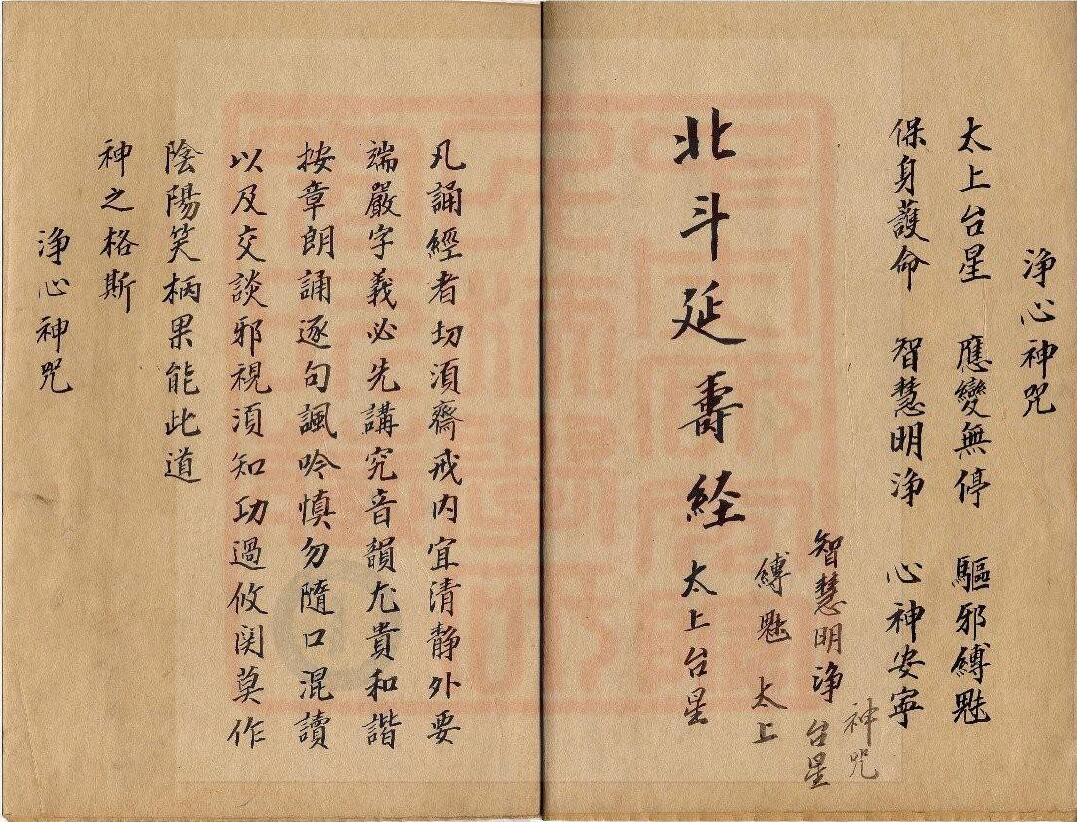 浄心神咒
太上台星 應變無停 驅邪縛魅
保身護命 智慧明浄 心神安寧
神咒
智慧明浄 台星
縛魅 太上
北斗延壽経 太上台星
凡誦經者切須齋戒内宜清静外要
端嚴字義必先講究音韻尤貴和諧
按章朗誦逐句諷吟慎勿隨口混讀
以及交談邪視須知功過攸関莫作
陰陽笑柄果能此道
神之格斯
浄心神咒